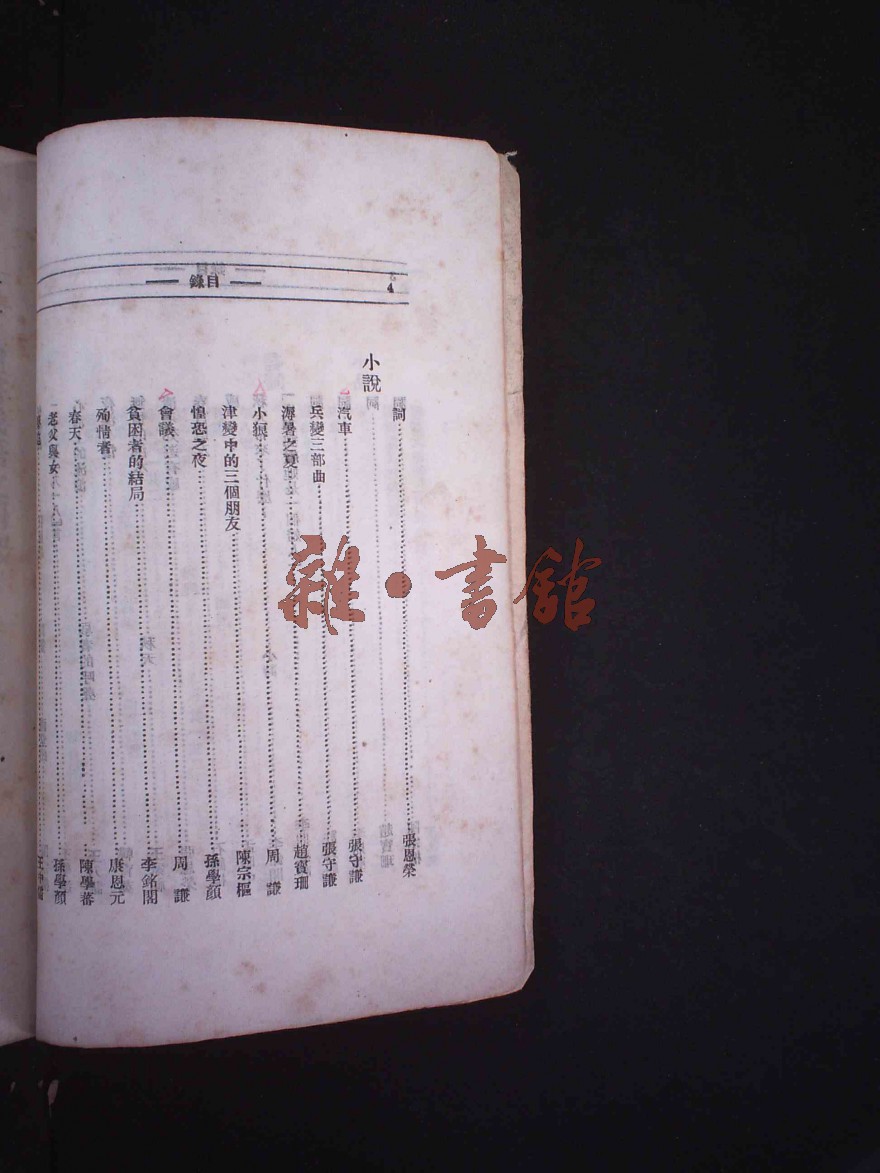 目錄
4
詞 張恩榮
小說
汽車 張守謙
兵變三部曲 張守謙
溽暑之夏 趙寶珊
小狽 周謙
津變中的三個朋友 陳宗樞
惶恐之夜 孫學顏
會議 周謙
貧困者的結局 李銘閣
殉情者 康恩元
春天 陳學蕃
老父與女 孫學顏
雜·書館